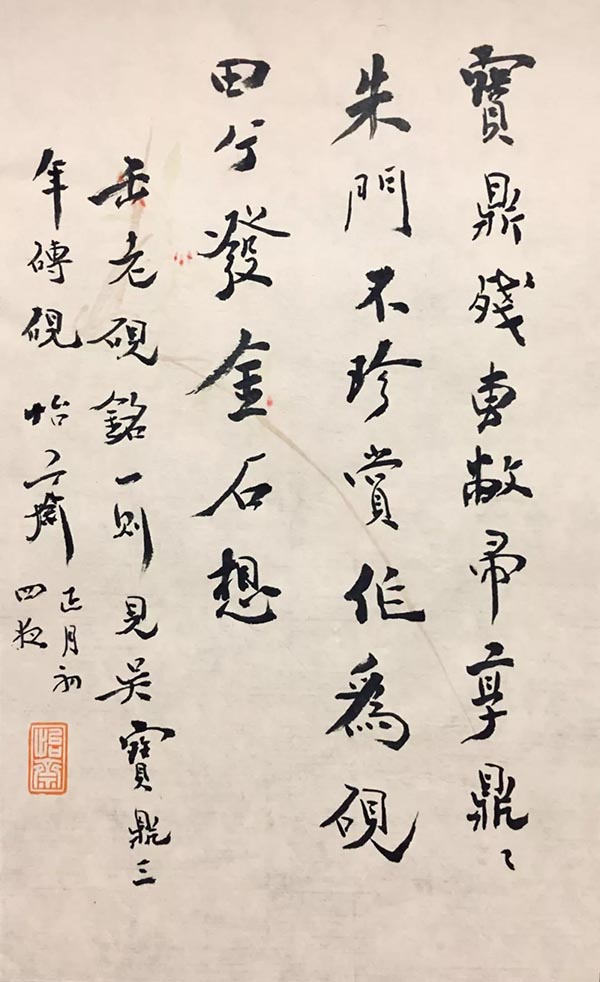 寶鼎殘專敝帚享鼎〻
朱門不珍賞作為硯
田兮發金石想
缶老硯銘一則見吳寶鼎三
年磚硯 怡齋
正月初
四夜
怡齋